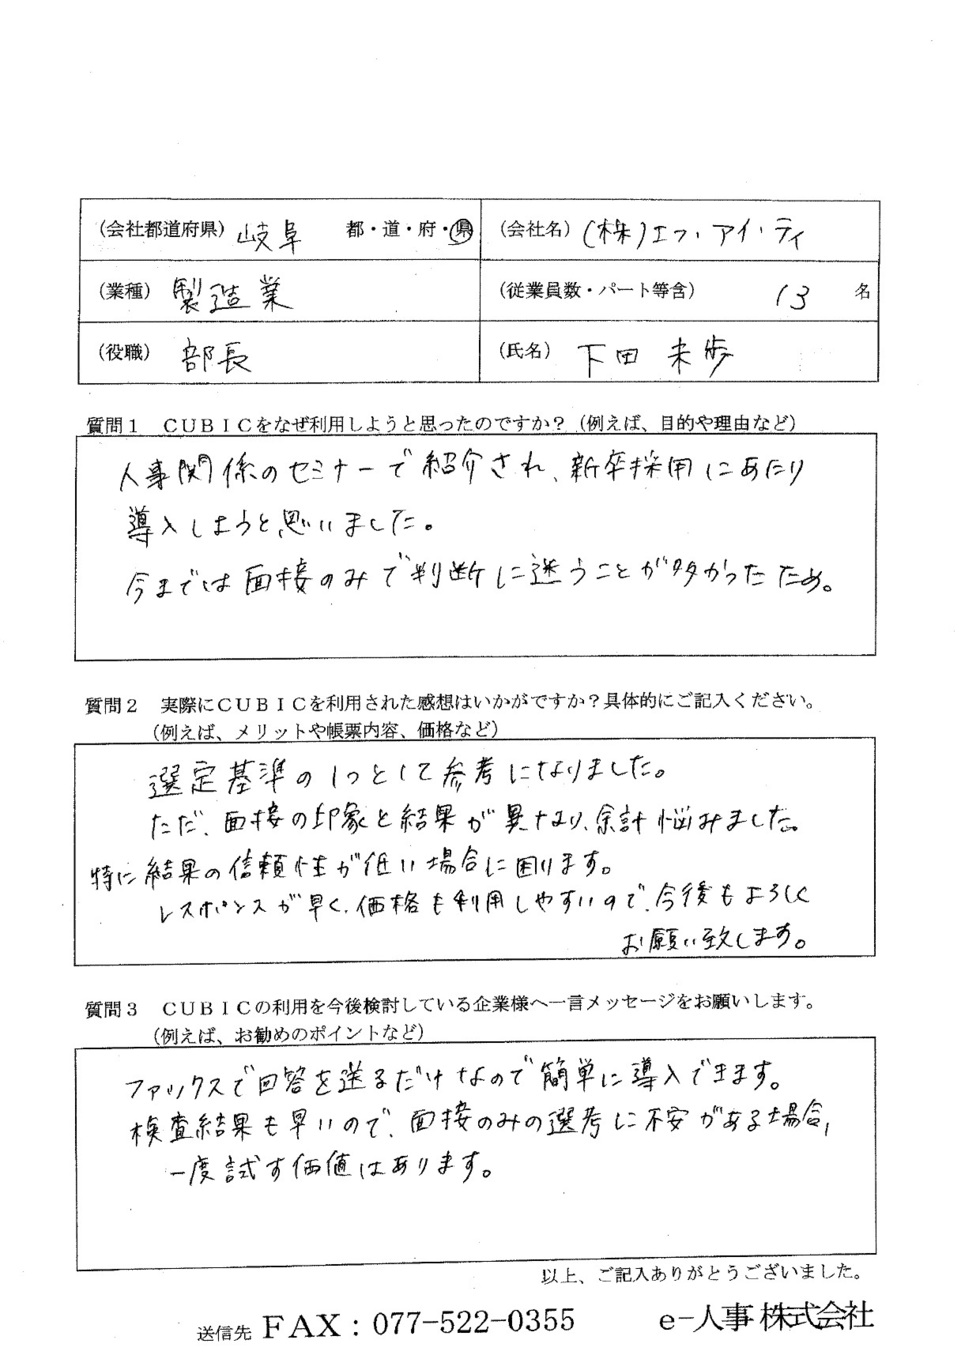 (会社都道府県) 岐阜 都・道・府・県
(会社名) (株)エフ・アイ・ティ
(業種) 製造業
(従業員数・パート等含) 13 名
(役職) 部長
(氏名) 下田 未歩
質問1 CUBICをなぜ利用しようと思ったのですか?(例えば、目的や理由など)
人事関係のセミナーで紹介され、新卒採用にあたり
導入しようと思いました。
今までは面接のみで判断に迷うことが多かったため。
質問2 実際にCUBICを利用された感想はいかがですか?具体的にご記入ください。
(例えば、メリットや帳票内容、価格など)
選定基準の1つとして参考になりました。
ただ、面接の印象と結果が異なり、余計悩みました。
特に結果の信頼性が低い場合に困ります。
レスポンスが早く、価格も利用しやすいので、今後もよろしく
お願い致します。
質問3 CUBICの利用を今後検討している企業様へ一言メッセージをお願いします。
(例えば、お勧めのポイントなど)
ファックスで回答を送るだけなので簡単に導入できます。
検査結果も早いので、面接のみの選考に不安がある場合、
一度試す価値はあります。
以上、ご記入ありがとうございました。
送信先 FAX:077-522-0355 e-人事株式会社